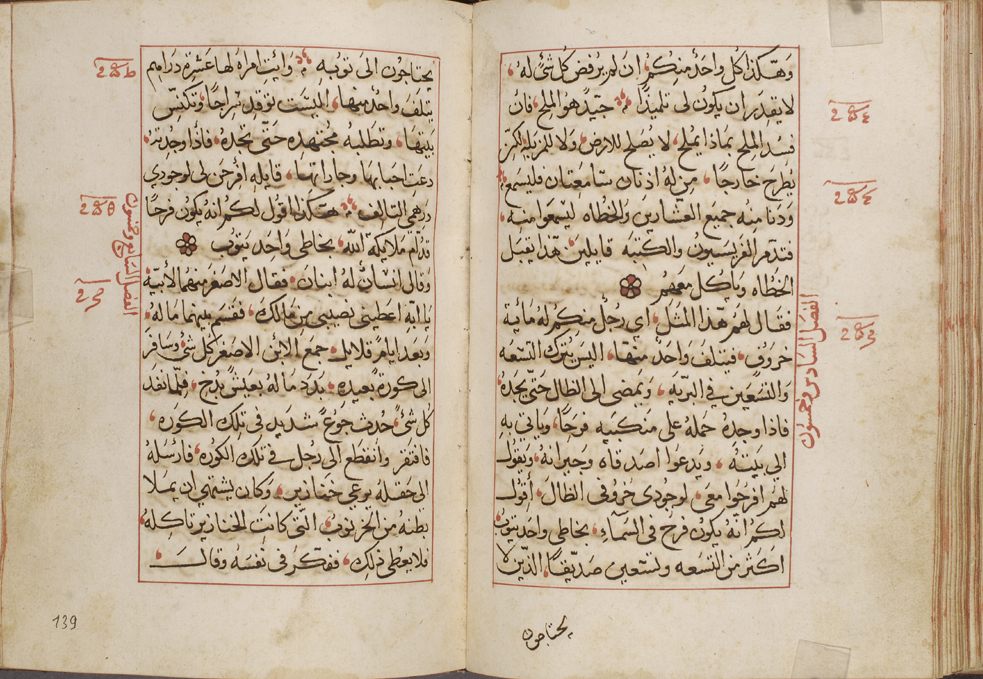 وهكذا كل واحد منكم ان لم يرفض كل شئ له
لا يقدر ان يكون لي تلميذا جيد هو الملح فان
فسد الملح بماذا يملح لا يصلح للارض ولا للمزبلة لكن
يطرح خارجا من له اذنان سامعتان فليسمع
ودنا منه جميع العشارين والخطاه ليسمعوا منه
فتذمر الفريسيون والكتبه قايلين هذا يقبل
الخطاه وياكل معهم
فقال لهم هذا المثل اي رجل منكم له ماية
خروف فتلف واحد منها اليس يترك التسعه
والتسعين في البريه ويمضي الى الظال حتى يجده
فاذا وجده حمله على منكبيه فرحا وياتي به
الي بيته ويدعوا اصدقاه وجيرانه ويقول
لهم افرحوا معي لوجودي خروفي الظال أقول
لكم انه يكون فرح في السماء بخاطي واحد يتوب
اكثر من التسعه وتسعين صديقا الذين لا
يحتاجون
الفصل السادس وخمسون
يحتاجون الى توبه وايت امراة لها عشرة دراهم
يتلف واحد منها اليست توقد سراجا وتكنس
بيتها وتطلبه مجتهده حتى تجده فاذا وجدته
دعت احبابها وجاراتها قايله أفرحن لي لوجودي
درهمي التالف هكذا اقول لكم انه يكون فرحا
قدام ملايكة الله بخاطي واحد يتوب
وقال انسان له ابنان فقال الاصغر منهما لأبيه
يا ابة اعطيني نصيبي من مالك فقسم بينهما ماله
وبعد ايام قلايل جمع الابن الاصغر كل شئ وسافر
الى كورة بعيده بدد ماله بعيش بذخ فلما نفد
كل شئ حدث جوع شديد في تلك الكوره
فافتقر وانقطع الى رجل في تلك الكوره فارسله
الى حقله يرعي خنازير وكان يشتهي ان يملا
بطنه من الخرنوب التي كانت الخنازير تاكله
فلا يعطى ذلك ففكر في نفسه وقال
الفصل السابع وخمسون
139